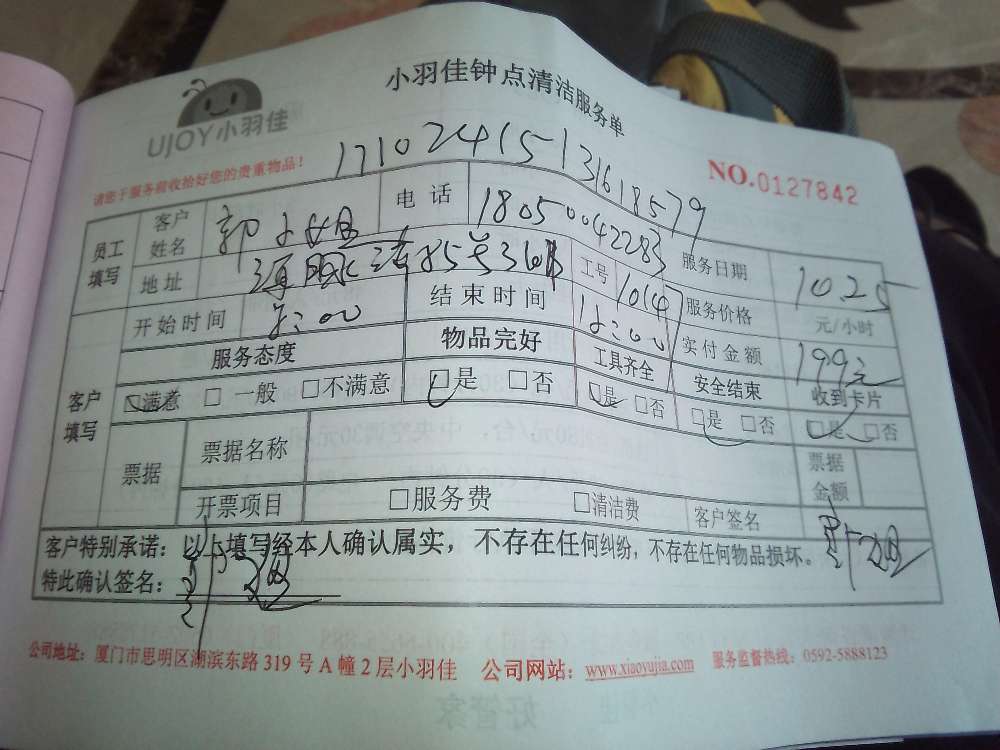 UJOY小羽佳
小羽佳钟点清洁服务单
请您于服务前收拾好您的贵重物品！
17102415131618579
NO.0127842
员工填写 客户姓名 郭小姐 电话 18050042283 服务日期 10.25
地址 工号 服务价格 元/小时
开始时间 结束时间 实付金额 199元
客户填写 服务态度 物品完好 工具齐全 安全结束 收到卡片
□满意 □一般 □不满意 □是 □否 □是 □否 □是 □否 □是 □否
票据 票据名称 票据金额
开票项目 □服务费 □清洁费 客户签名
客户特别承诺：以上填写经本人确认属实，不存在任何纠纷，不存在任何物品损坏。
特此确认签名：
公司地址：厦门市思明区湖滨东路319号A幢2层小羽佳 公司网站：www.xiaoyujia.com 服务监督热线：0592-5888123